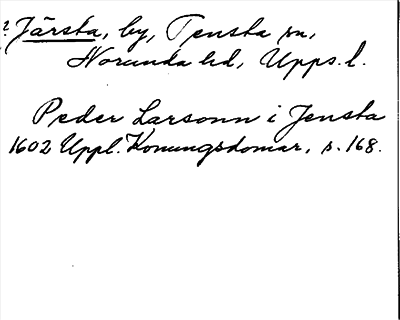 ? Järsta, by, Tensta sn,
Norunda hd, Upps. l.
Peder Larsonn i Jensta
1602 Uppl. Konungsdomar, s. 168.